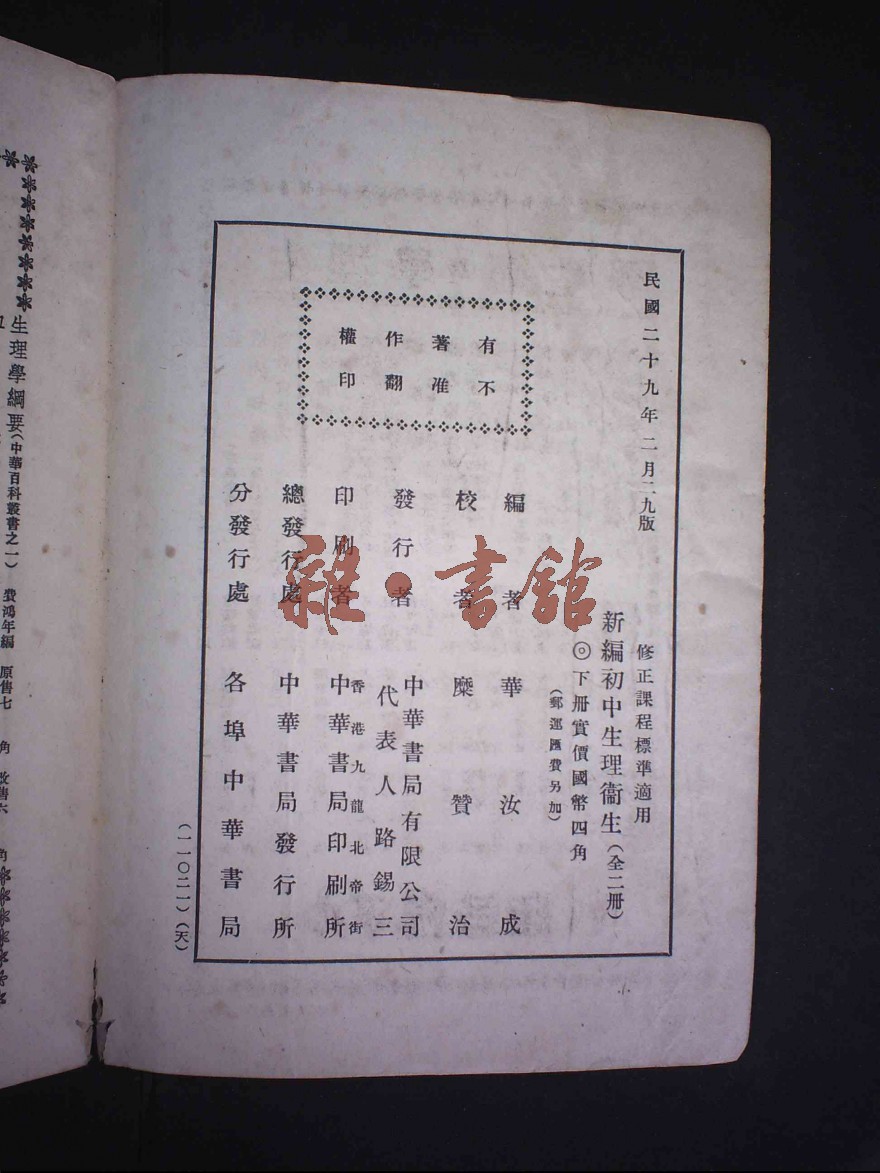 民國二十九年二月二九版
修正課程標準適用
新編初中生理衞生(全二册)
◎下册實價國幣四角
(郵運匯費另加)
有著作權
不准翻印
編者 華汝成
校者 糜贊治
發行者 中華書局有限公司
代表人路錫三
印刷者 香港九龍北帝街
中華書局印刷所
總發行處 中華書局發行所
分發行處 各埠中華書局
(一一〇二一)(天)
雜·書館
生理學綱要(中華百科叢書之一) 費鴻年編 原售七角 改售六角